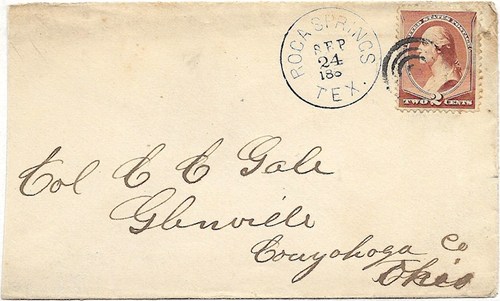 ROCA SPRINGS
SEP
24
188
TEX.
UNITED STATES POSTAGE
TWO 2 CENTS
Col C C Gale
Glenville
Couyohoga Co
Ohio